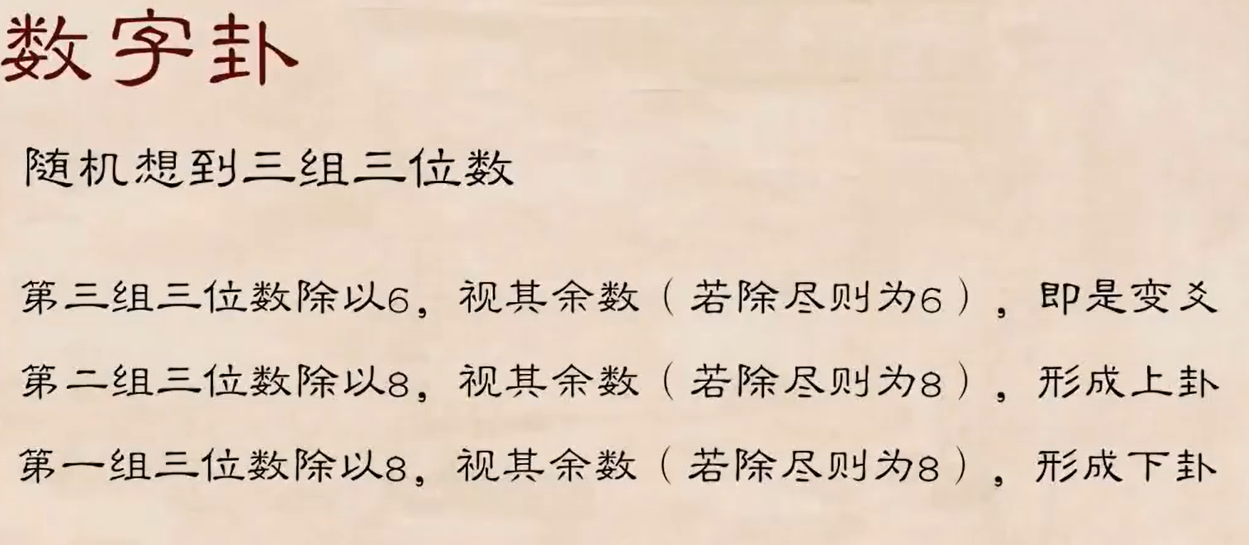 数字卦
随机想到三组三位数
第三组三位数除以6，视其余数（若除尽则为6），即是变爻
第二组三位数除以8，视其余数（若除尽则为8），形成上卦
第一组三位数除以8，视其余数（若除尽则为8），形成下卦